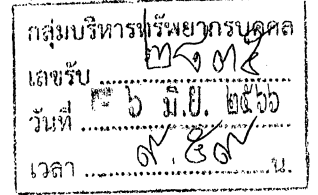 กลุ่มบริหารทรัพยากรบุคคล
เลขรับ
วันที่ ๖ มิ.ย. ๒๕๖๖
เวลา ๙.๕๙ น.